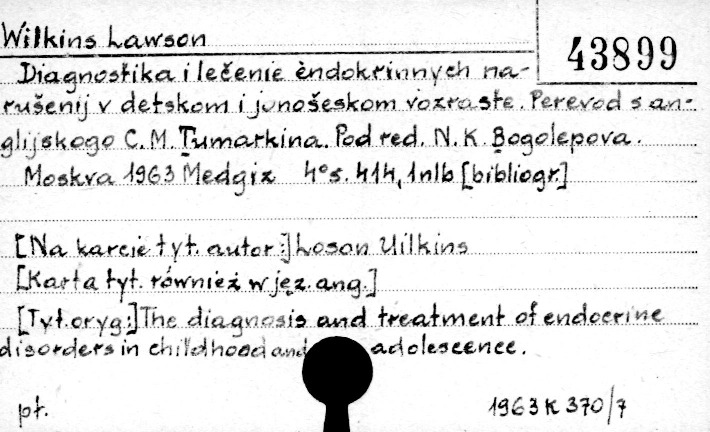 Wilkins Lawson
43899
Diagnostika i lečenie èndokrinnych na-
rušenij v detskom i junošeskom vozraste. Perevod s an-
glijskogo C. M. Tumarkina. Pod red. N. K. Bogolepova.
Moskva 1963 Medgiz 4°s. 414, 1nlb [bibliogr.]
[Na karcie tyt. autor:] Loson Uilkins
[Karta tyt. również w jęz. ang.]
[Tyt. oryg:] The diagnosis and treatment of endocrine
disorders in childhood and adolescence.
pt.
1963 K 370/7